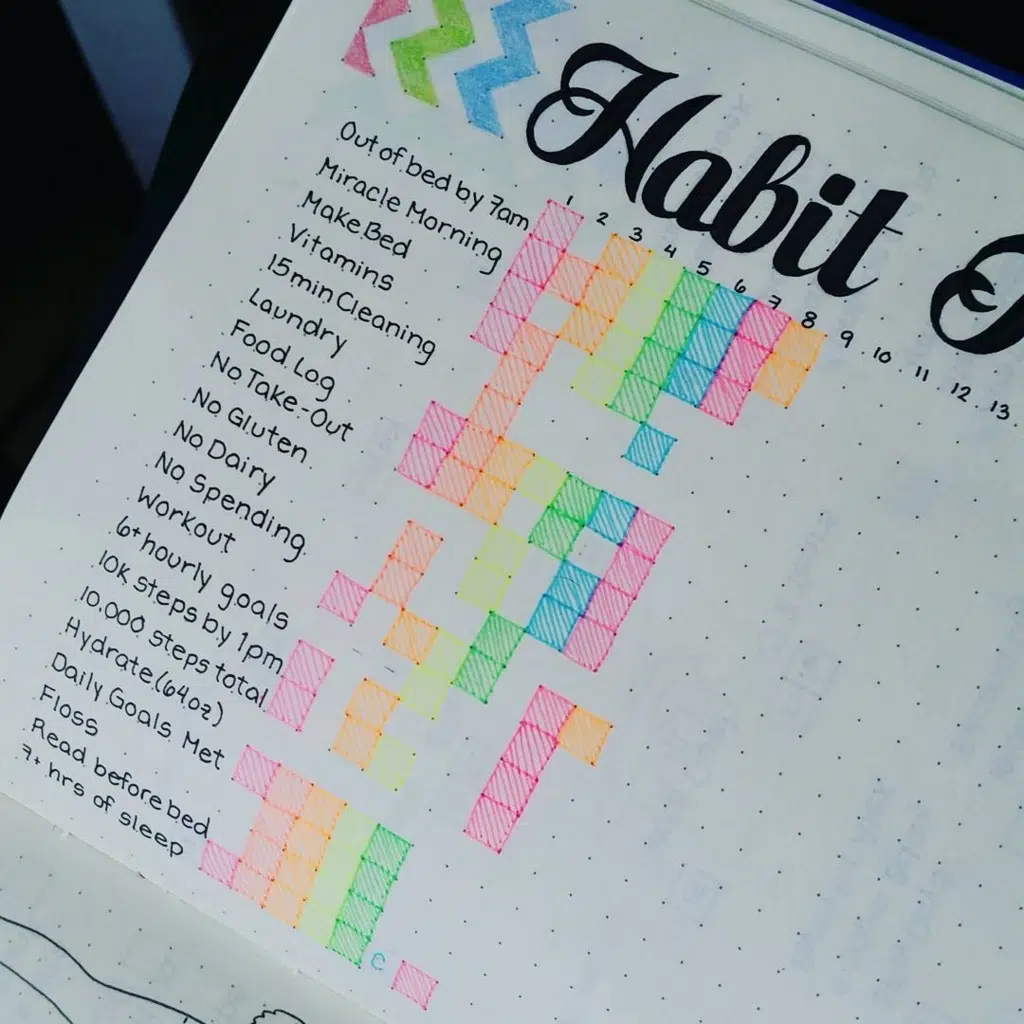 Habit
1 2 3 4 5 6 7 8 9 10 11 12 13
Out of bed by 7am
Miracle Morning
Make Bed
Vitamins
15min Cleaning
Laundry
Food Log
No Take-Out
No Gluten
No Dairy
No Spending
Workout
6+ hourly goals
10K steps by 1pm
10,000 steps total
Hydrate (64oz)
Daily Goals Met
Floss
Read before bed
7+ hrs of sleep
C